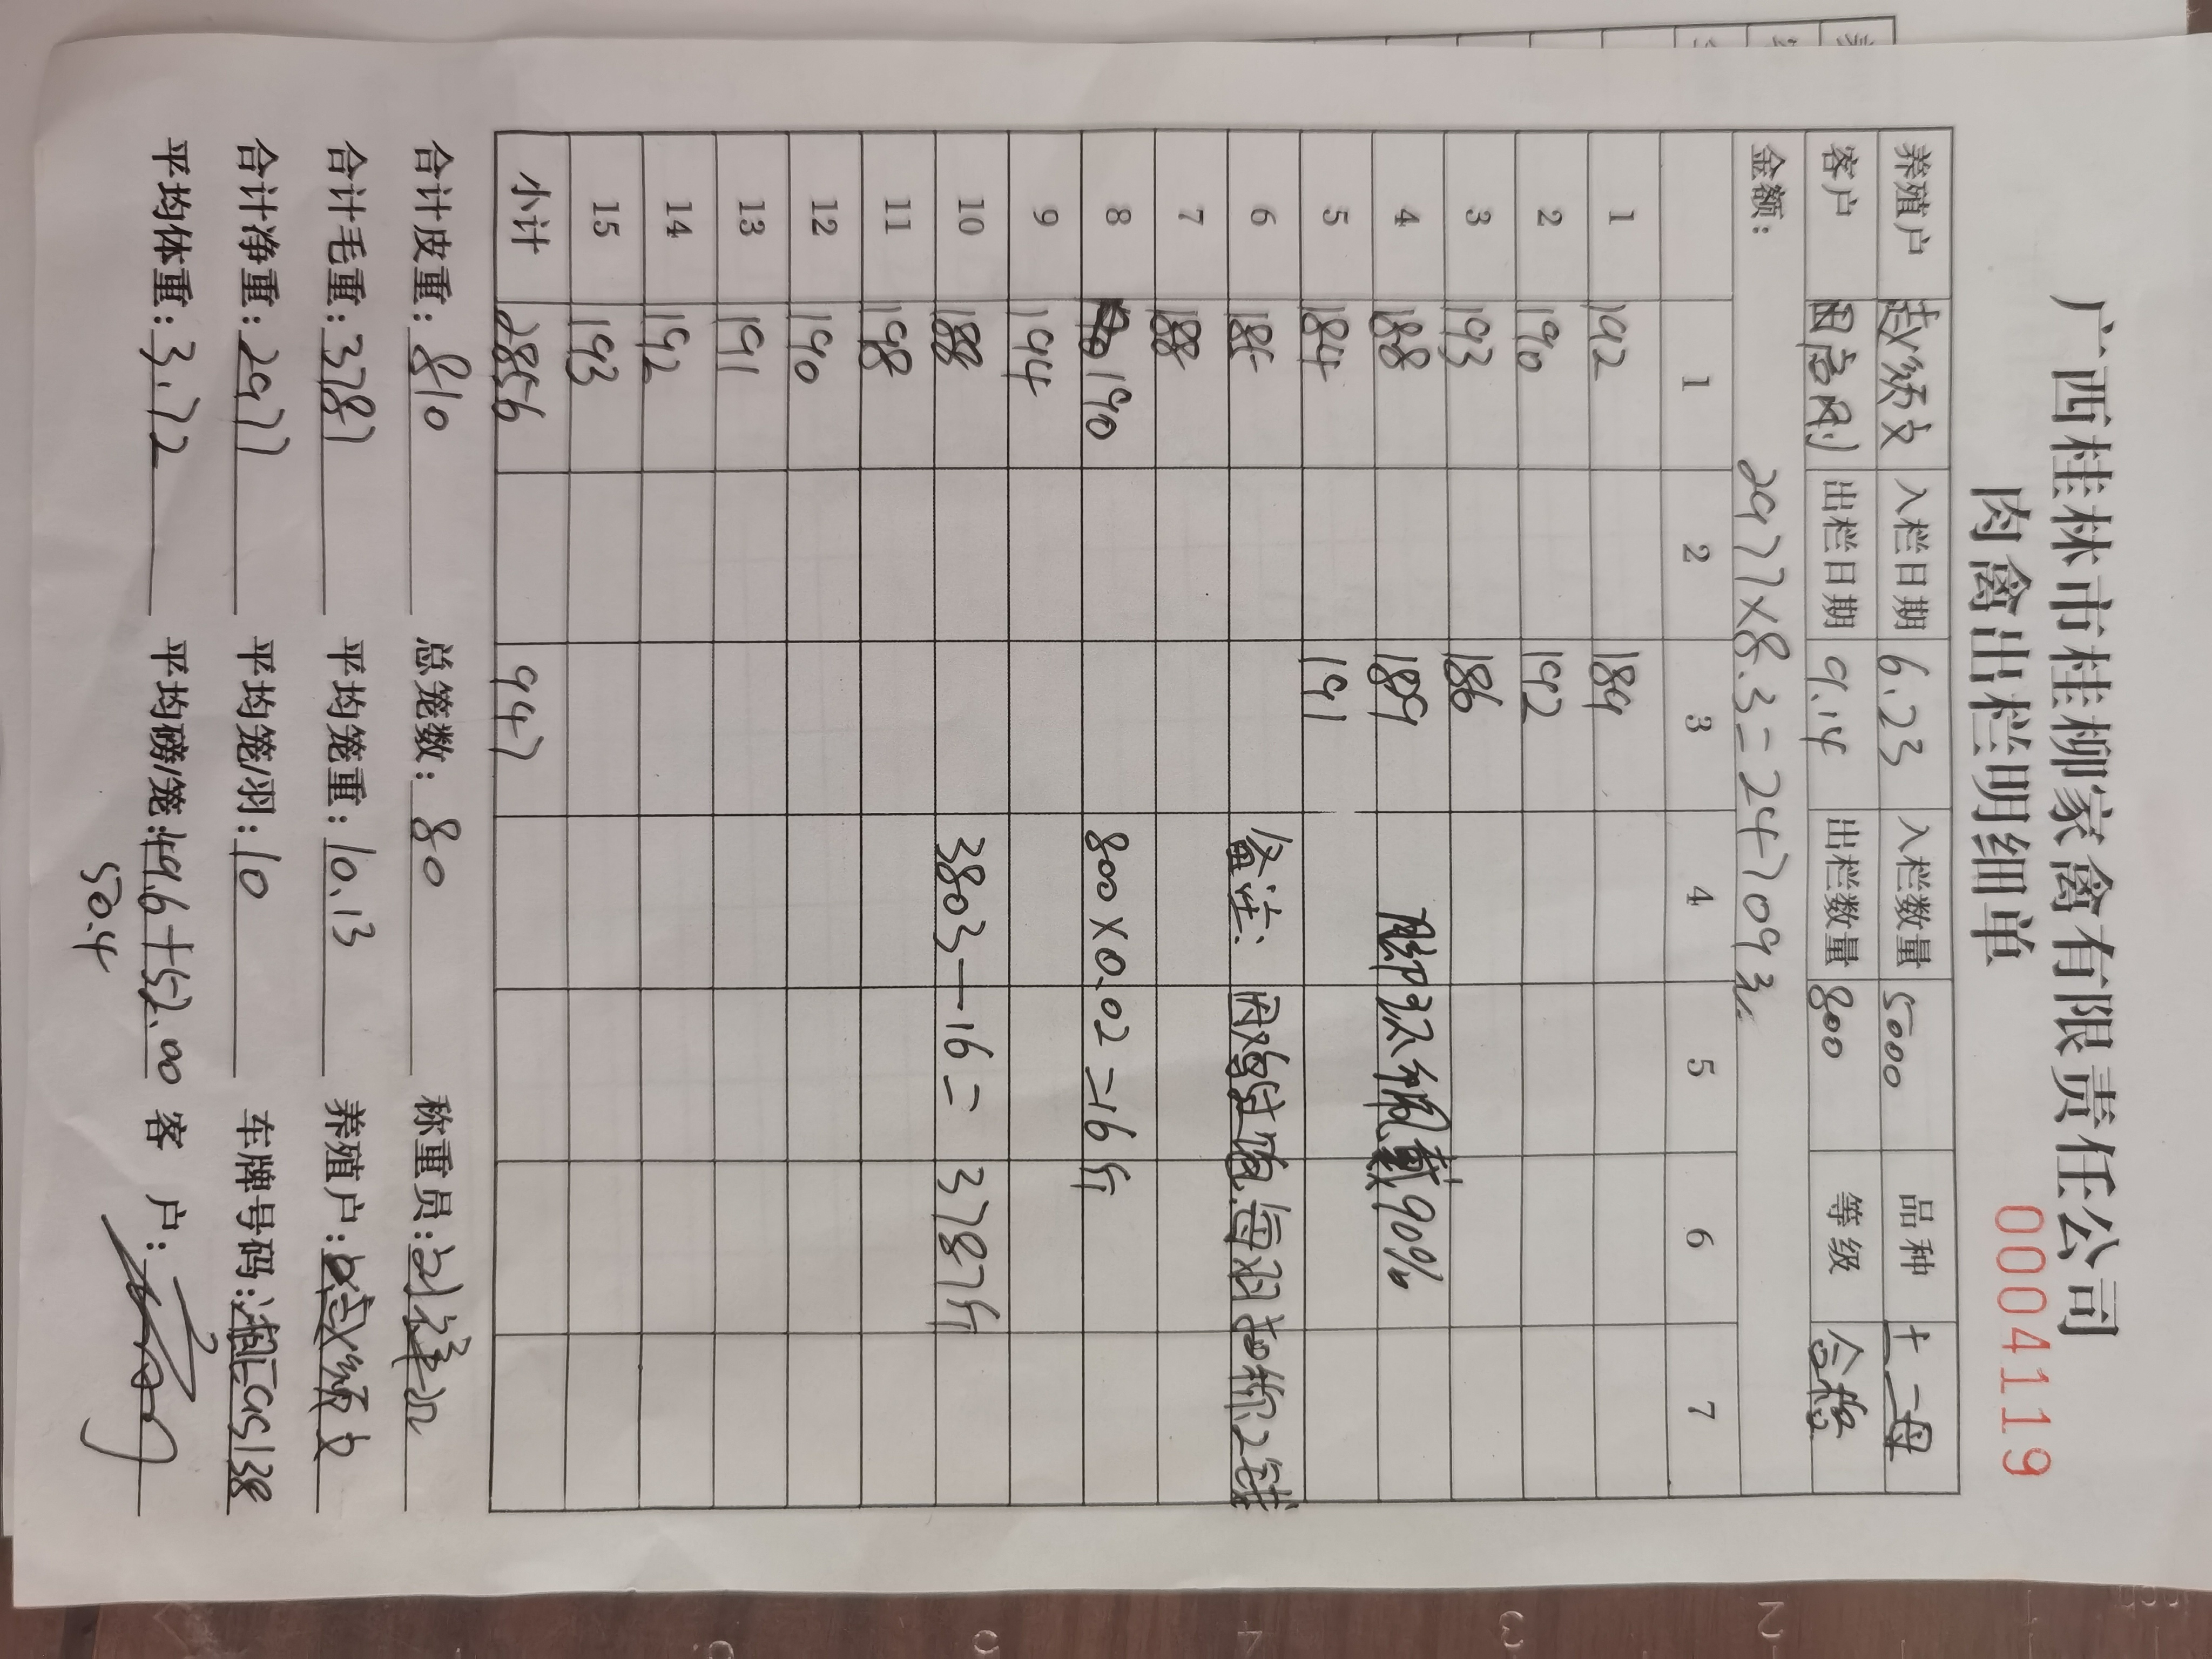 广西桂林市桂柳家禽有限责任公司
肉禽出栏明细单
0004119
养殖户 赵 入栏日期 6.23 入栏数量 5000 品种 土二母
客户 出栏日期 9.14 出栏数量 800 等级 合格
金额： 2977×8.3=24709元
1 2 3 4 5 6 7
1 192 189
2 190 192
3 193 186
4 188 189 脚环佩戴90%
5 184 191
6 185 备注: 因鸡过饱.每羽扣称2钱
7 188
8 190 800×0.02=16斤
9 194
10 188 3803-16=3787斤
11 198
12 190
13 191
14 192
15 193
小计 2856 947
合计皮重：810 总笼数：80 称重员：
合计毛重：3787 平均笼重：10.13 养殖户：赵
合计净重：2977 平均笼/羽：10 车牌号码：
平均体重：3.72 平均磅/笼：49.6+52.00 客 户：
50.4